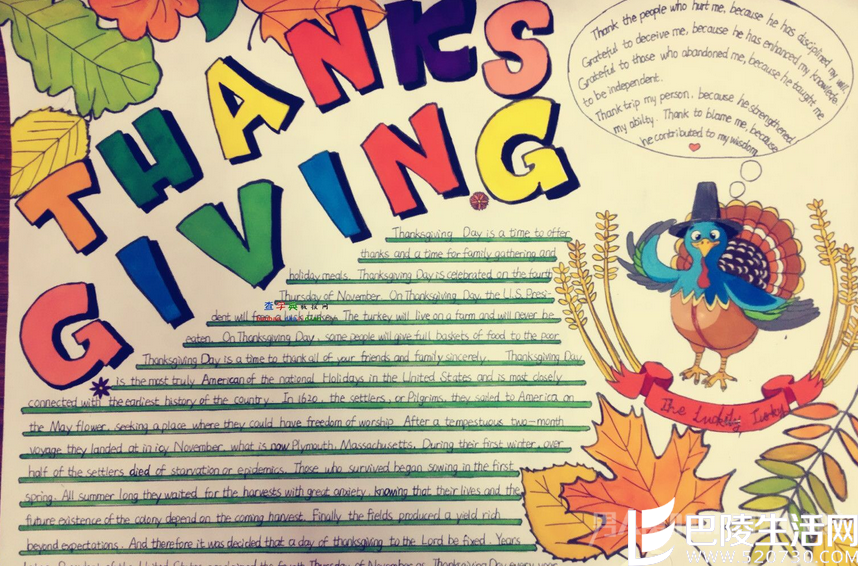 THANKS
GIVING
Thank the people who hurt me, because he has disciplined my will
Grateful to deceive me, because he has enhanced my knowledge
Grateful to those who abandoned me, because he taught me
to be independent.
Thank trip my person, because he strengthened
my abilty. Thank to blame me, because
he contributed to my wisdom
Thanksgiving Day is a time to offer
thanks and a time for family gathering and
holiday meals. Thanksgiving Day is celebrated on the fourth
Thursday of November. On Thanksgiving Day, the U.S. Pres-
dent will a turkey. The turkey will live on a farm and will never be
eaten. On Thanksgiving Day, some people will give full baskets of food to the poor
Thanksgiving Day is a time to thank all of your friends and family sincerely. Thanksgiving Day
is the most truly American of the national Holidays in the United States and is most closely
connected with the earliest history of the country. In 1620, the settlers, or Pilgrims, they sailed to America on
the May flower, seeking a place where they could have freedom of worship. After a tempestuous two-month
voyage they landed at in icy November, what is now Plymouth, Massachusetts. During their first winter, over
half of the settlers died of starvation or epidemics. Those who survived began sowing in the first
spring. All summer long they waited for the harvests with great anxiety, knowing that their lives and the
future existence of the colony depend on the coming harvest. Finally the fields produced a yield rich
beyond expectations. And therefore it was decided that a day of thanksgiving to the Lord be fixed. Years
of the United States the fourth Thursday of November as Thanksgiving Day every year
The Turkey
巴陵生活网
www.520730.com